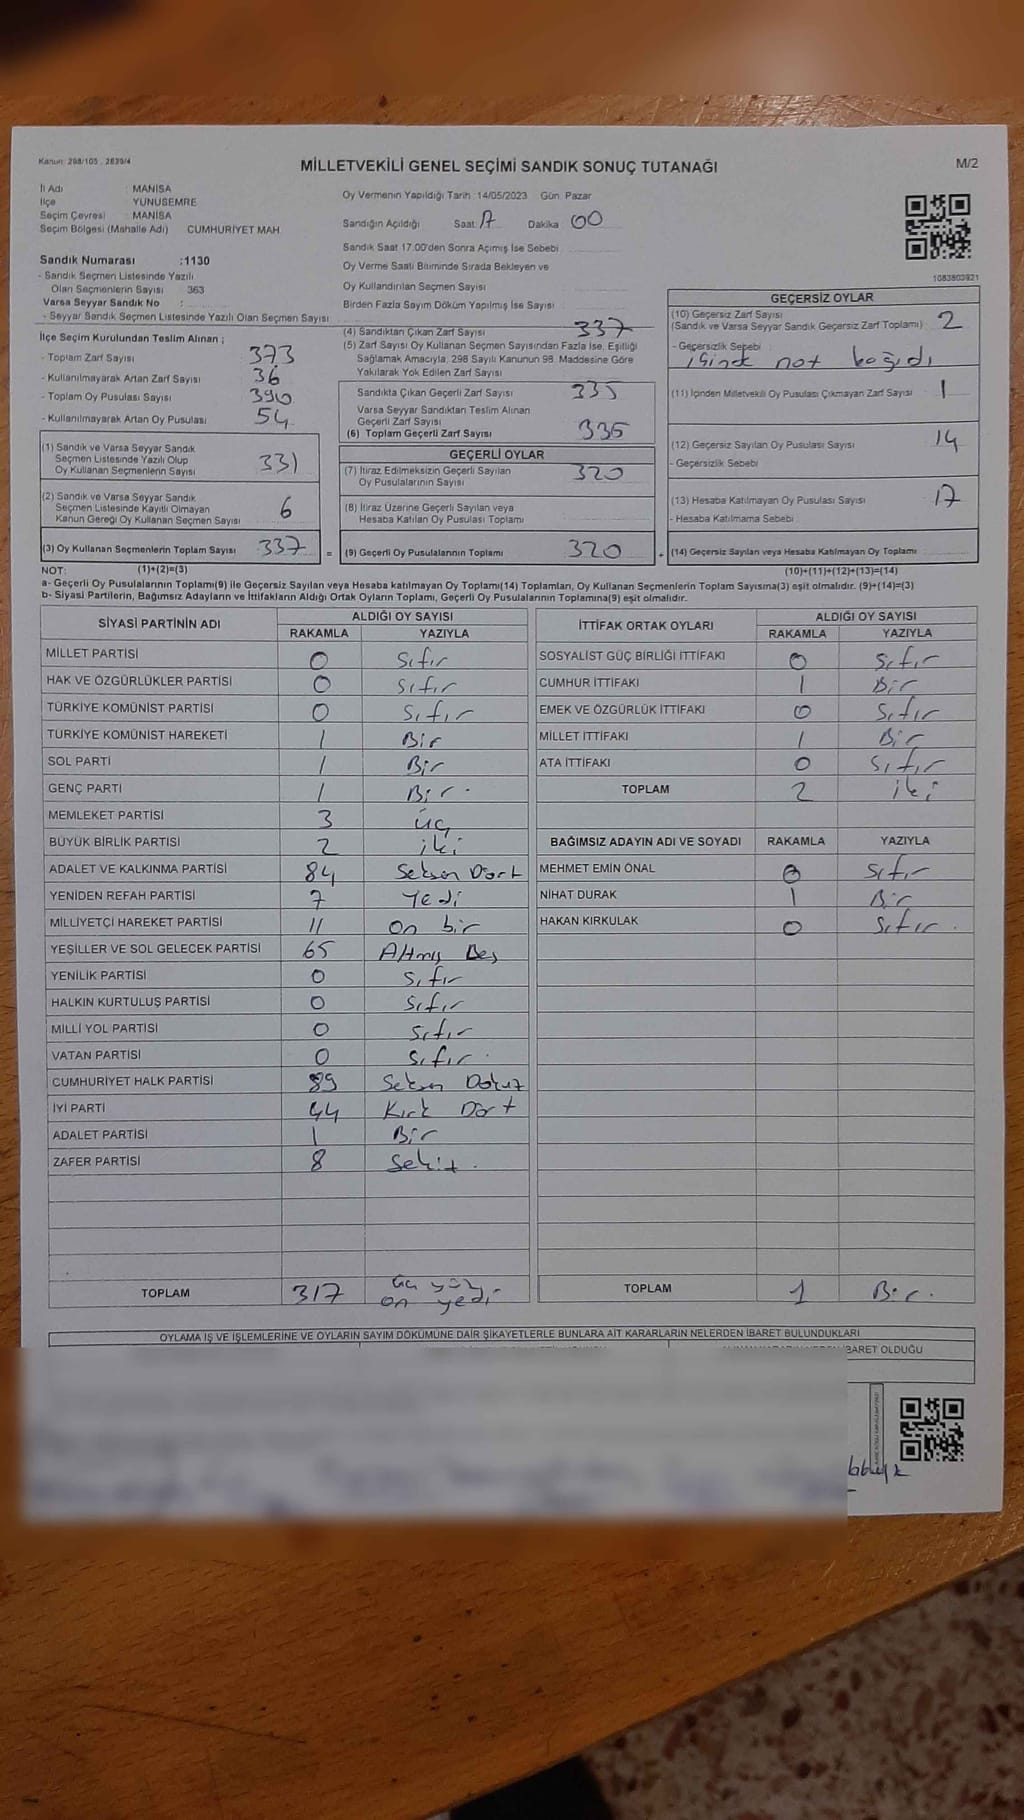 Kanun: 298/105 , 2839/4
MİLLETVEKİLİ GENEL SEÇİMİ SANDIK SONUÇ TUTANAĞI
M/2
İl Adı : MANİSA
İlçe : YUNUSEMRE
Seçim Çevresi : MANİSA
Seçim Bölgesi (Mahalle Adı) CUMHURİYET MAH.
Oy Vermenin Yapıldığı Tarih : 14/05/2023 Gün: Pazar
Sandığın Açıldığı Saat 17 Dakika 00
Sandık Saat 17:00'den Sonra Açılmış İse Sebebi
Oy Verme Saati Bitiminde Sırada Bekleyen ve
Oy Kullandırılan Seçmen Sayısı
Birden Fazla Sayım Döküm Yapılmış İse Sayısı :
1083803921
Sandık Numarası :1130
- Sandık Seçmen Listesinde Yazılı
Olan Seçmenlerin Sayısı 363
Varsa Seyyar Sandık No :
- Seyyar Sandık Seçmen Listesinde Yazılı Olan Seçmen Sayısı :
İlçe Seçim Kurulundan Teslim Alınan ;
- Toplam Zarf Sayısı 373
- Kullanılmayarak Artan Zarf Sayısı 36
- Toplam Oy Pusulası Sayısı 390
- Kullanılmayarak Artan Oy Pusulası 54
(1) Sandık ve Varsa Seyyar Sandık
Seçmen Listesinde Yazılı Olup
Oy Kullanan Seçmenlerin Sayısı 331
(2) Sandık ve Varsa Seyyar Sandık
Seçmen Listesinde Kayıtlı Olmayan
Kanun Gereği Oy Kullanan Seçmen Sayısı 6
(3) Oy Kullanan Seçmenlerin Toplam Sayısı 337 =
(4) Sandıktan Çıkan Zarf Sayısı 337
(5) Zarf Sayısı Oy Kullanan Seçmen Sayısından Fazla İse, Eşitliği
Sağlamak Amacıyla, 298 Sayılı Kanunun 98. Maddesine Göre
Yakılarak Yok Edilen Zarf Sayısı
Sandıkta Çıkan Geçerli Zarf Sayısı 335
Varsa Seyyar Sandıktan Teslim Alınan
Geçerli Zarf Sayısı
(6) Toplam Geçerli Zarf Sayısı 335
GEÇERLİ OYLAR
(7) İtiraz Edilmeksizin Geçerli Sayılan
Oy Pusulalarının Sayısı 320
(8) İtiraz Üzerine Geçerli Sayılan veya
Hesaba Katılan Oy Pusulası Toplamı
(9) Geçerli Oy Pusulalarının Toplamı 320 +
GEÇERSİZ OYLAR
(10) Geçersiz Zarf Sayısı 2
(Sandık ve Varsa Seyyar Sandık Geçersiz Zarf Toplamı)
- Geçersizlik Sebebi :
içinde not kağıdı
(11) İçinden Milletvekili Oy Pusulası Çıkmayan Zarf Sayısı 1
(12) Geçersiz Sayılan Oy Pusulası Sayısı 14
- Geçersizlik Sebebi
(13) Hesaba Katılmayan Oy Pusulası Sayısı 17
- Hesaba Katılmama Sebebi
(14) Geçersiz Sayılan veya Hesaba Katılmayan Oy Toplamı
NOT: (1)+(2)=(3) (10)+(11)+(12)+(13)=(14)
a- Geçerli Oy Pusulalarının Toplamı(9) ile Geçersiz Sayılan veya Hesaba katılmayan Oy Toplamı(14) Toplamları, Oy Kullanan Seçmenlerin Toplam Sayısına(3) eşit olmalıdır. (9)+(14)=(3)
b- Siyasi Partilerin, Bağımsız Adayların ve İttifakların Aldığı Ortak Oyların Toplamı, Geçerli Oy Pusulalarının Toplamına(9) eşit olmalıdır.
SİYASİ PARTİNİN ADI ALDIĞI OY SAYISI
RAKAMLA YAZIYLA
MİLLET PARTİSİ 0 Sıfır
HAK VE ÖZGÜRLÜKLER PARTİSİ 0 Sıfır
TÜRKİYE KOMÜNİST PARTİSİ 0 Sıfır
TÜRKİYE KOMÜNİST HAREKETİ 1 Bir
SOL PARTİ 1 Bir
GENÇ PARTİ 1 Bir.
MEMLEKET PARTİSİ 3 üç
BÜYÜK BİRLİK PARTİSİ 2 iki
ADALET VE KALKINMA PARTİSİ 84 Seksen Dört
YENİDEN REFAH PARTİSİ 7 Yedi
MİLLİYETÇİ HAREKET PARTİSİ 11 On bir
YEŞİLLER VE SOL GELECEK PARTİSİ 65 Altmış Beş
YENİLİK PARTİSİ 0 Sıfır
HALKIN KURTULUŞ PARTİSİ 0 Sıfır
MİLLİ YOL PARTİSİ 0 Sıfır
VATAN PARTİSİ 0 Sıfır.
CUMHURİYET HALK PARTİSİ 89 Seksen Dokuz
İYİ PARTİ 44 Kırk Dört
ADALET PARTİSİ 1 Bir
ZAFER PARTİSİ 8 Sekiz.
TOPLAM 317 Üç yüz
on yedi
İTTİFAK ORTAK OYLARI ALDIĞI OY SAYISI
RAKAMLA YAZIYLA
SOSYALİST GÜÇ BİRLİĞİ İTTİFAKI 0 Sıfır
CUMHUR İTTİFAKI 1 Bir
EMEK VE ÖZGÜRLÜK İTTİFAKI 0 Sıfır
MİLLET İTTİFAKI 1 Bir
ATA İTTİFAKI 0 Sıfır
TOPLAM 2 iki
BAĞIMSIZ ADAYIN ADI VE SOYADI RAKAMLA YAZIYLA
MEHMET EMİN ÖNAL 0 Sıfır
NİHAT DURAK 1 Bir
HAKAN KIRKULAK 0 Sıfır.
TOPLAM 1 Bir.
OYLAMA İŞ VE İŞLEMLERİNE VE OYLARIN SAYIM DÖKÜMÜNE DAİR ŞİKAYETLERLE BUNLARA AİT KARARLARIN NELERDEN İBARET BULUNDUKLARI
İBARET OLDUĞU